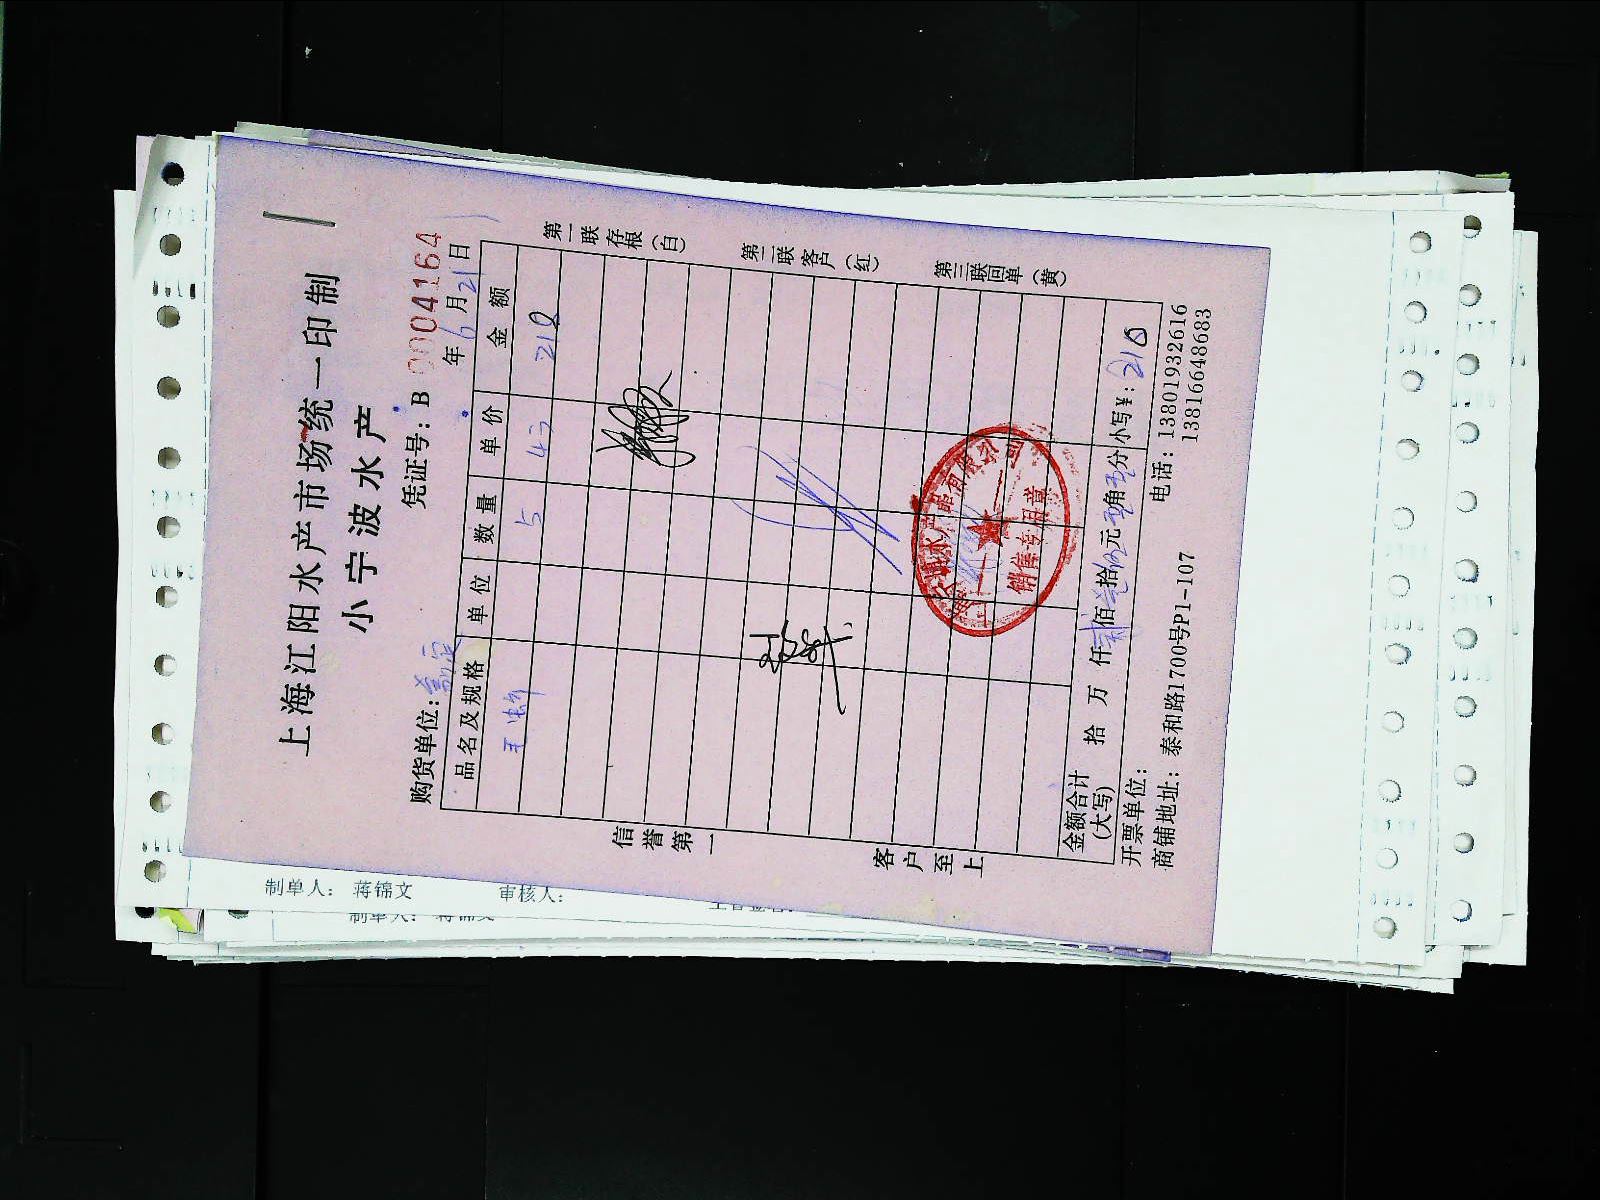 上海江阳水产市场统一印制
小宁波水产
凭证号：B 0004164
购货单位：
年6月21日
品名及规格 单位 数量 单价 金额
5 43 210
第一联存根（白）
第二联客户（红）
第三联回单（黄）
信誉第一
客户至上
销售专用章
金额合计（大写） 拾 万 仟 佰 拾 元 角 分 小写¥：210
开票单位：
电话：13801932616
13816648683
商铺地址：泰和路1700号P1-107
制单人：蒋锦文 审核人：
制单人：蒋锦文